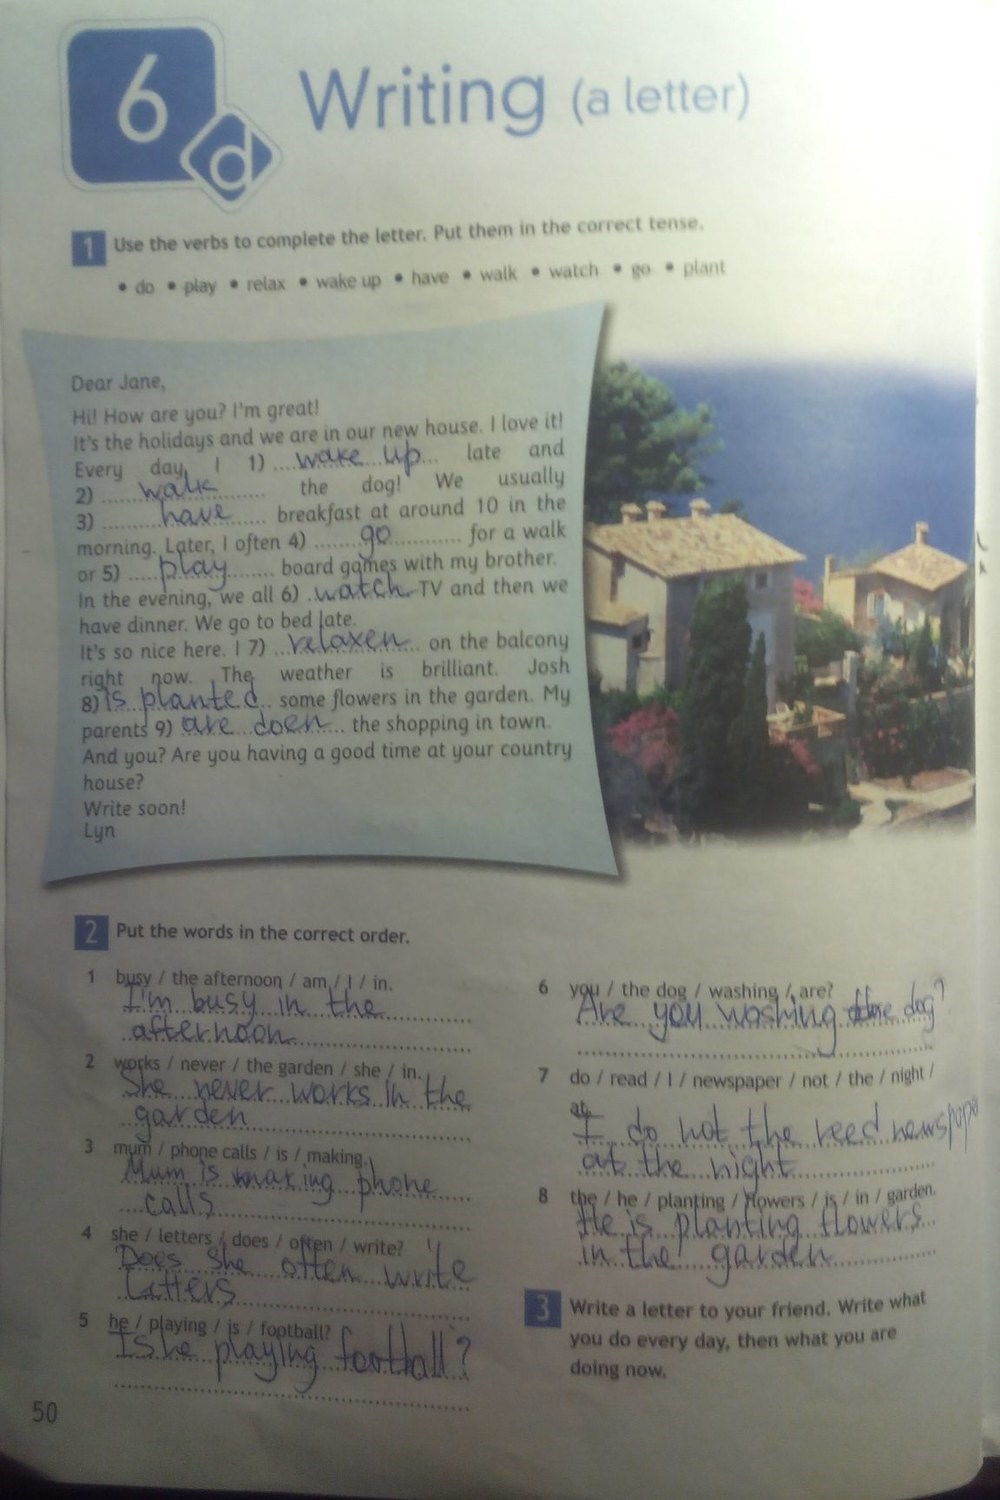 6
d
Writing (a letter)
1 Use the verbs to complete the letter. Put them in the correct tense.
• do • play • relax • wake up • have • walk • watch • go • plant
Dear Jane,
Hi! How are you? I'm great!
It's the holidays and we are in our new house. I love it!
Every day, I 1) wake up late and
2) walk the dog! We usually
3) have breakfast at around 10 in the
morning. Later, I often 4) go for a walk
or 5) play board games with my brother.
In the evening, we all 6) watch TV and then we
have dinner. We go to bed late.
It's so nice here. I 7) relaxen on the balcony
right now. The weather is brilliant. Josh
8) is planted some flowers in the garden. My
parents 9) are doen the shopping in town.
And you? Are you having a good time at your country
house?
Write soon!
Lyn
2 Put the words in the correct order.
1 busy / the afternoon / am / I / in.
I'm busy in the
afternoon
2 works / never / the garden / she / in.
She never works in the
garden
3 mum / phone calls / is / making.
Mum is making phone
calls
4 she / letters / does / often / write?
Does she often write
Latters
5 he / playing / is / football?
Is he playing football?
50
6 you / the dog / washing / are?
Are you washing the dog?
7 do / read / I / newspaper / not / the / night /
at
I do not the reed newspape
at the night
8 the / he / planting / flowers / is / in / garden.
He is planting flowers
in the garden
3 Write a letter to your friend. Write what
you do every day, then what you are
doing now.